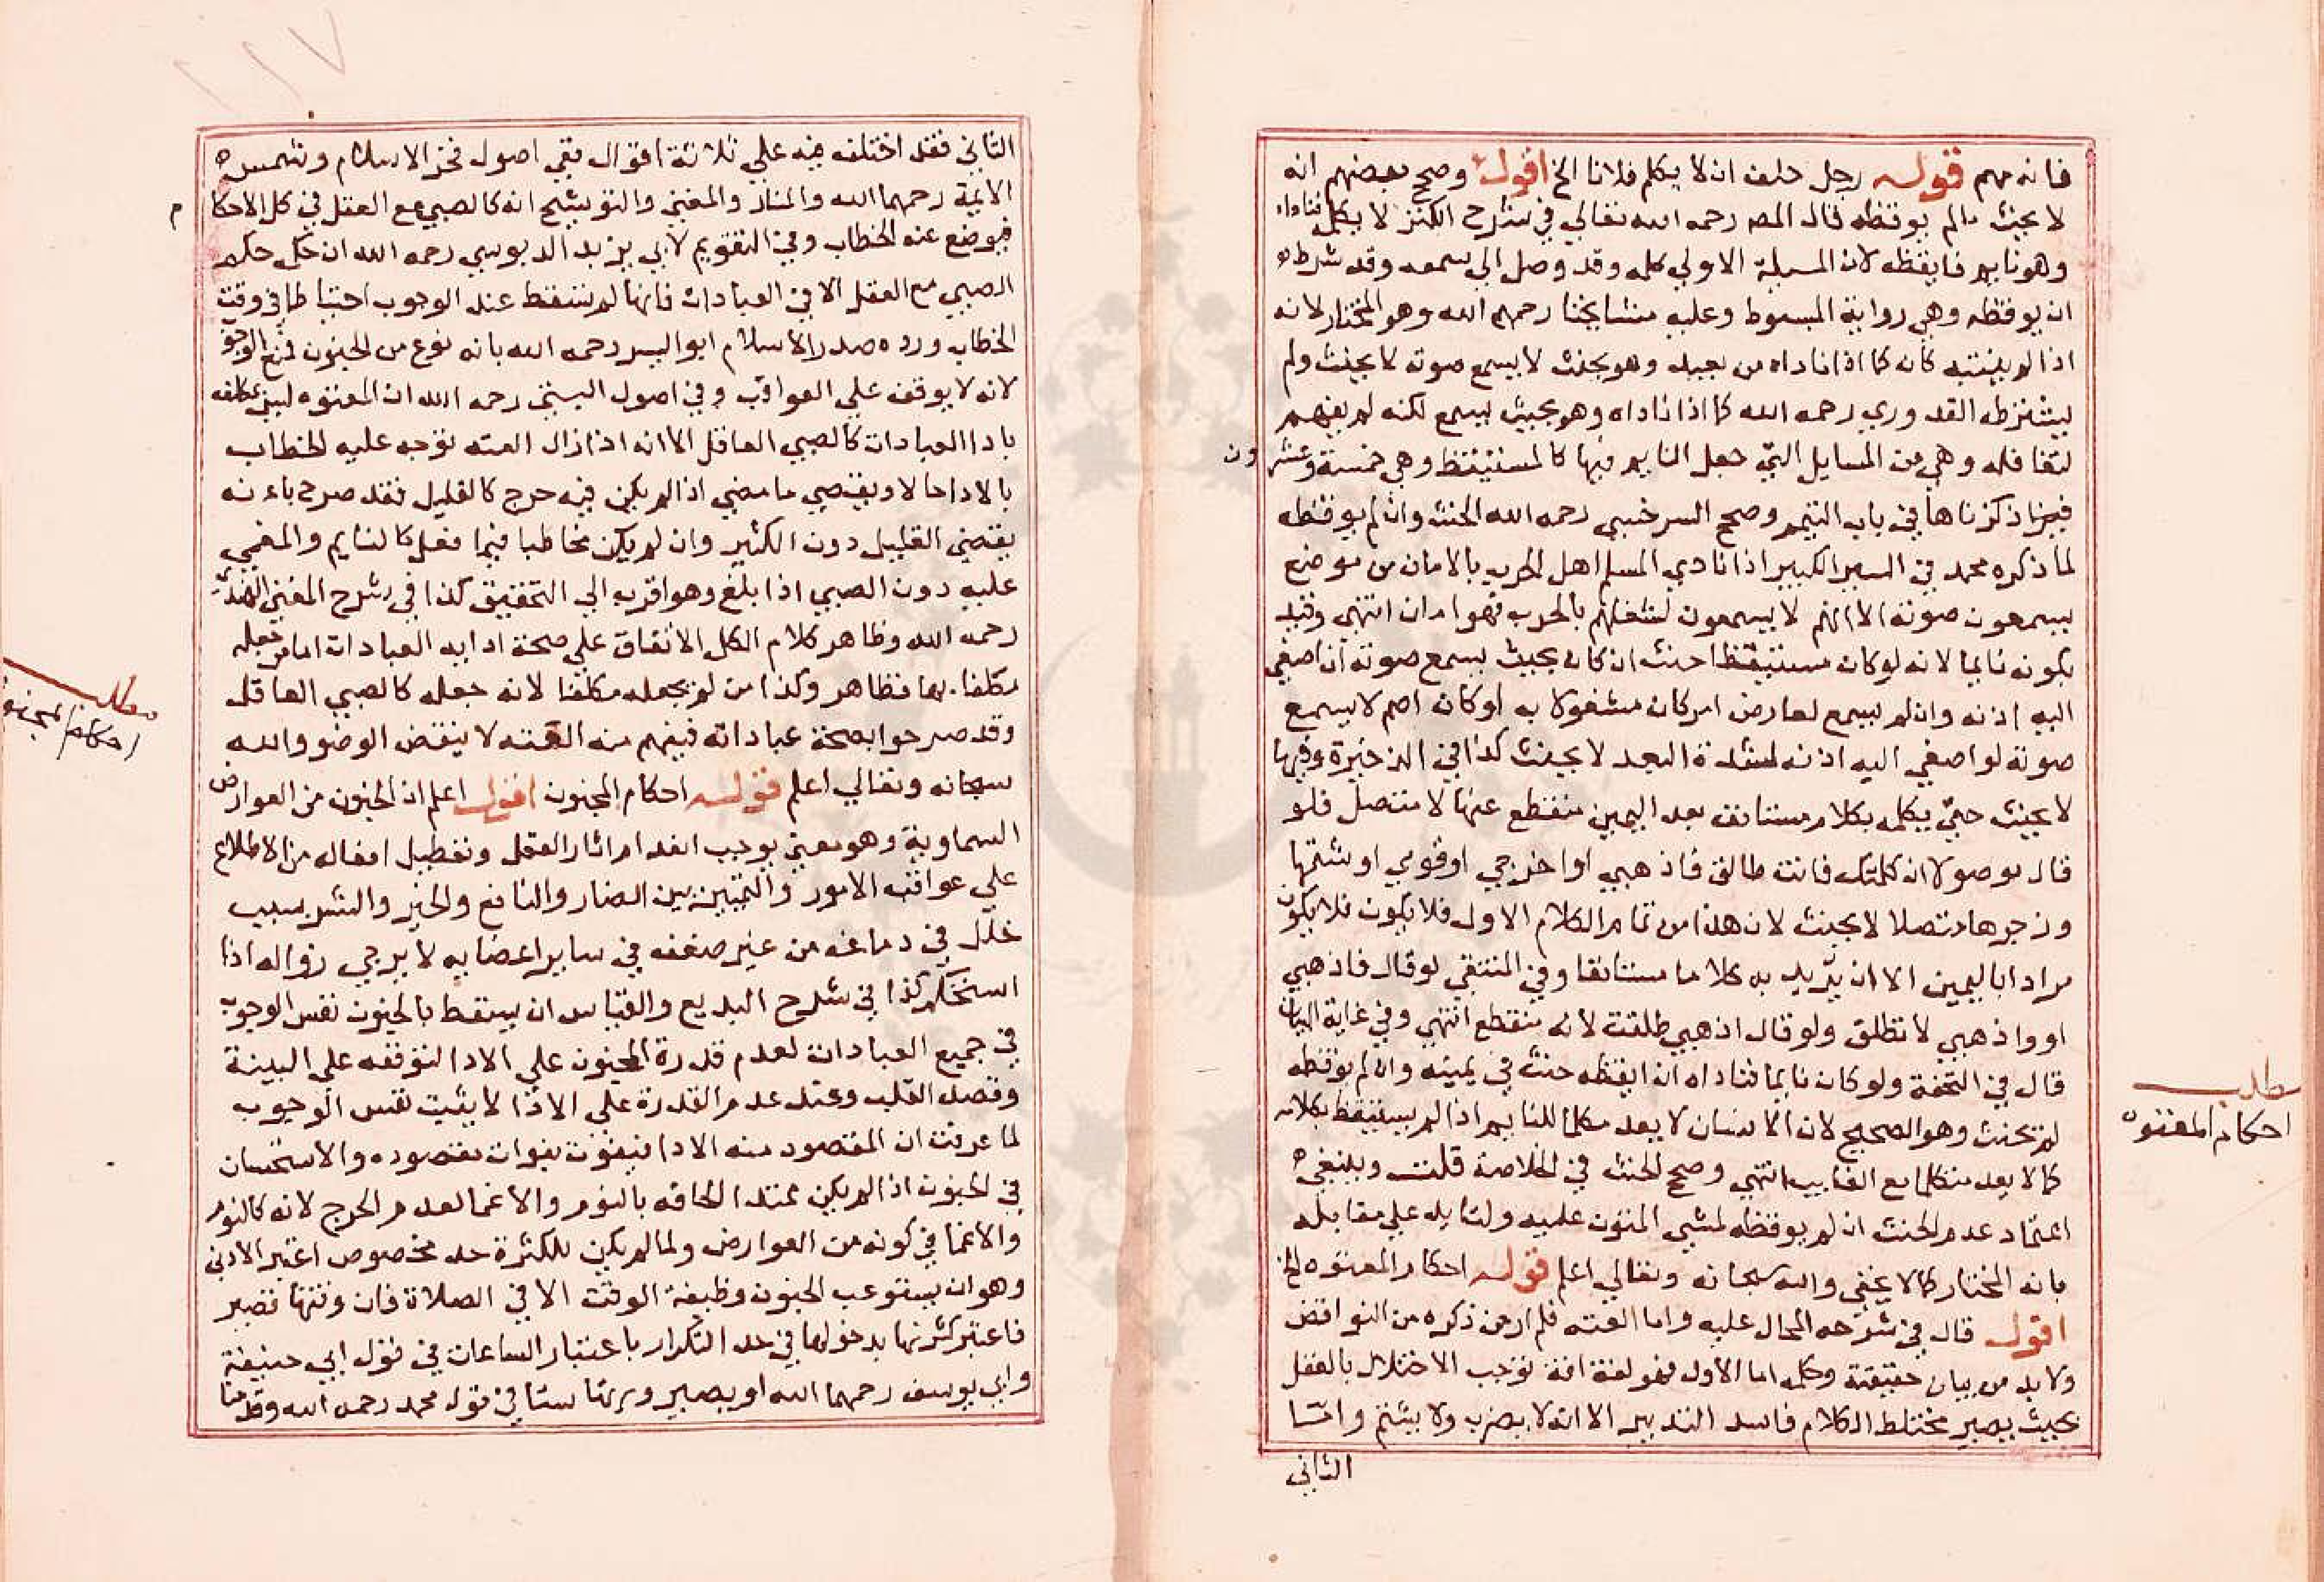 فانه مهم قوله رجل حلف ان لا يكلم فلانا الخ اقول وصحح بعضهم انه
لا يحنث مالم يوقظه قال المصـ رحمه الله تعالي في شرح الكنز لا يكلم فناداه
وهو نايم فايقظه لان المسيلة الاولي كلمه وقد وصل الي سمعه وقد شرطه
ان يوقظه وهي رواية المبسوط وعليه مشايخنا رحمهم الله وهو المختار لانه
اذا لم ينتبه كان كما اذا ناداه من بعيد وهو بحيث لا يسمع صوته لا يحنث ولم
يشترطه القدوري رحمه الله كما اذا ناداه وهو بحيث يسمع لكنه لم يفهم
لتغافله وهي من المسايل التي جعل النايم فيها كالمستيقظ وهي خمسة وعشرون
ذكرناها في باب التيمم وصحح السرخسي رحمه الله الحنث وان لم يوقظه
لما ذكره محمد في السير الكبير اذا نادي المسلم اهل الحرب بالامان من موضع
يسمعون صوته الا انهم لا يسمعون لشغلهم بالحرب فهو امان انتهي وقيد
بكونه نايما لانه لو كان مستيقظا حنث ان كان بحيث يسمع صوته ان اصغي
اليه اذنه وان لم يسمع لعارض امر كان مشغولا به او كان اصم لا يسمع
صوته لو اصغي اليه اذنه لشدة البعد لا يحنث كذا في الذخيرة وفيها
لا يحنث حتي يكلمه بكلام مستانف بعد اليمين منقطع عنها لا متصل فلو
قال موصولا ان كلمتك فانت طالق فاذهبي او اخرجي او قومي او شتمها
وزجرها متصلا لا يحنث لان هذا من تمام الكلام الاول فلا يكون فلا يكون
مرادا باليمين الا ان يريد به كلاما مستانفا وفي المنتقي لو قال فاذهبي
او واذهبي لا تطلق ولو قال اذهبي طلقت لانه منقطع انتهي وفي غاية البيان
قال في التحفة ولو كان نايما فناداه ان ايقظه حنث في يمينه وان لم يوقظه
لم يحنث وهو الصحيح لان الانسان لا يعد مكلما للنايم اذا لم يستيقظ بكلامه
كما لا يعد متكلما مع الغايب انتهي وصحح الحنث في الخلاصة قلت وينبغي
اعتماد عدم الحنث ان لم يوقظه لمشي المتون عليه ولتايده علي مقابله
بانه المختار كما لا يخفي والله سبحانه وتعالي اعلم قوله احكام المعتوه الخ
اقول قال في شرحه المحال عليه واما العته فلم ار من ذكره من النواقض
ولا بد من بيان حقيقته وحكمه اما الاول فهو لغة افة توجب الاختلال بالعقل
بحيث يصير مختلط الكلام فاسد التدبير الا انه لا يضرب ولا يشتم واما
الثاني
مطلب
احكام المعتوه
الثاني فقد اختلف فيه علي ثلاثة اقوال ففي اصول فخر الاسلام وشمس
الايمة رحمهما الله والمنار والمغني والتوشيح انه كالصبي مع العقل في كل الاحكام
فيوضع عنه الخطاب وفي التقويم لابي يزيد الدبوسي رحمه الله ان حكمه حكم
الصبي مع العقل الا في العبادات فانها لم تسقط عند الوجوب احتياطا في وقت
الخطاب ورده صدر الاسلام ابو اليسر رحمه الله بانه نوع من الجنون فمنع الوجوب
لانه لا يوقف علي العواقب وفي اصول البستي رحمه الله ان المعتوه ليس بمكلف
بادا العبادات كالصبي العاقل الا انه اذا زال العته توجه عليه الخطاب
بالادا حالا وبقضي ما مضي اذا لم يكن فيه حرج كالقليل فقد صرح بانه
يقضي القليل دون الكثير وان لم يكن مخاطبا فيما فعل كالنايم والمغمي
عليه دون الصبي اذا بلغ وهو اقرب الي التحقيق كذا في شرح المغني للهندي
رحمه الله وظاهر كلام الكل الاتفاق علي صحة ادايه العبادات اما من جعله
مكلفا بها فظاهر وكذا من لم يجعله مكلفا لانه جعله كالصبي العاقل
وقد صرحوا بصحة عباداته فيفهم منه ان العته لا ينقض الوضو والله
سبحانه وتعالي اعلم قوله احكام المجنون اقول اعلم ان الجنون من العوارض
السماوية وهو معني يوجب انعدام اثار العقل وتعطيل افعاله من الاطلاع
علي عواقب الامور والتمييز بين الضار والنافع والخير والشر بسبب
خلل في دماغه من غير ضعف في ساير اعضايه لا يرجي زواله اذا
استحكم كذا في شرح البديع والقياس ان يسقط بالجنون نفس الوجوب
في جميع العبادات لعدم قدرة المجنون علي الادا لتوقفه علي النية
وقصد القلب وعند عدم القدرة علي الادا لا يثبت نفس الوجوب
لما عرفت ان المقصود منه الادا فيفوت بفوات مقصوده والاستحسان
في الجنون اذا لم يكن ممتدا الحاقه بالنوم والاغما لعدم الحرج لانه كالنوم
والاغما في كونه من العوارض ولما لم يكن للكثرة حد مخصوص اعتبر الادني
وهو ان يستوعب الجنون وظيفة الوقت الا في الصلاة فان وقتها قصير
فاعتبر كثرتها بدخولها في حد التكرار باعتبار الساعات في قول ابي حنيفة
وابي يوسف رحمهما الله او بصيرورتها ستا في قول محمد رحمه الله
مطلب
احكام المجنون